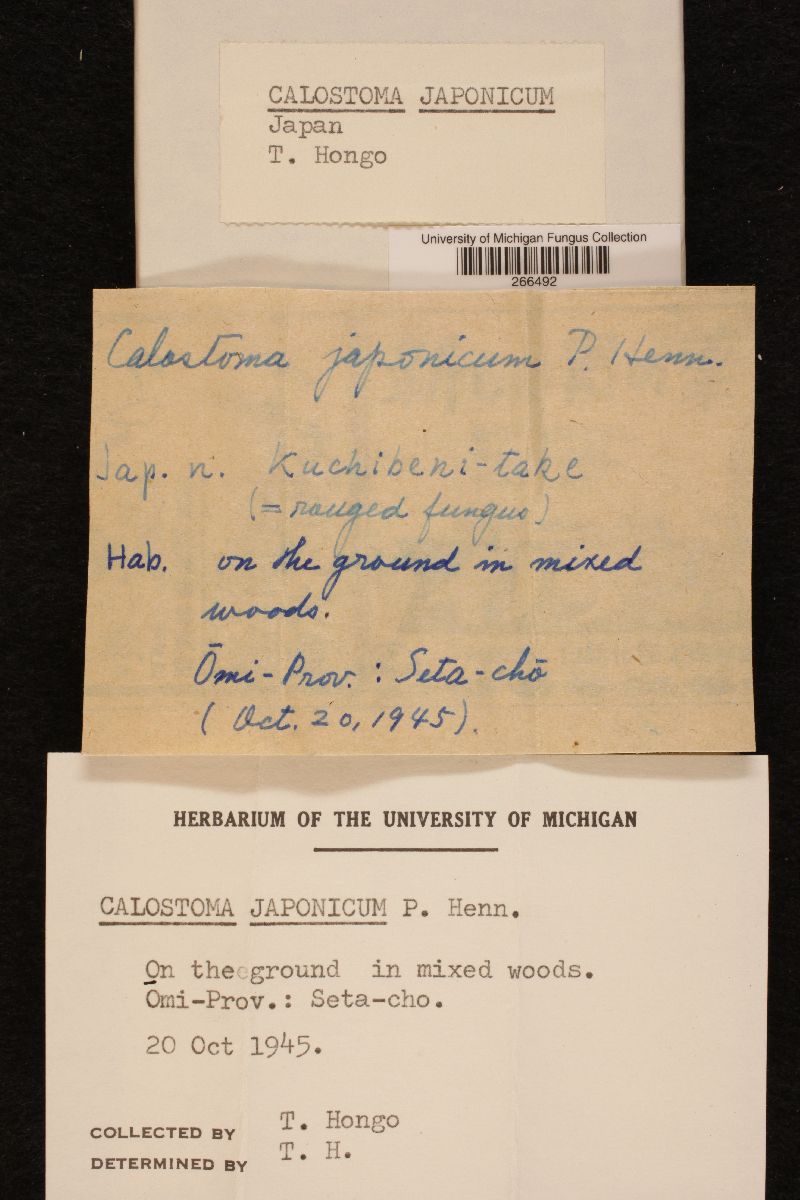 CALOSTOMA JAPONICUM
Japan
T. Hongo
University of Michigan Fungus Collection
266492
Calostoma japonicum P. Henn.
Jap. n. Kuchibeni-take
(= rouged fungus)
Hab. on the ground in mixed
woods.
Ōmi-Prov. : Seta-chō
(Oct. 20, 1945).
HERBARIUM OF THE UNIVERSITY OF MICHIGAN
CALOSTOMA JAPONICUM P. Henn.
On the ground in mixed woods.
Ōmi-Prov.: Seta-cho.
20 Oct 1945.
COLLECTED BY T. Hongo
DETERMINED BY T. H.